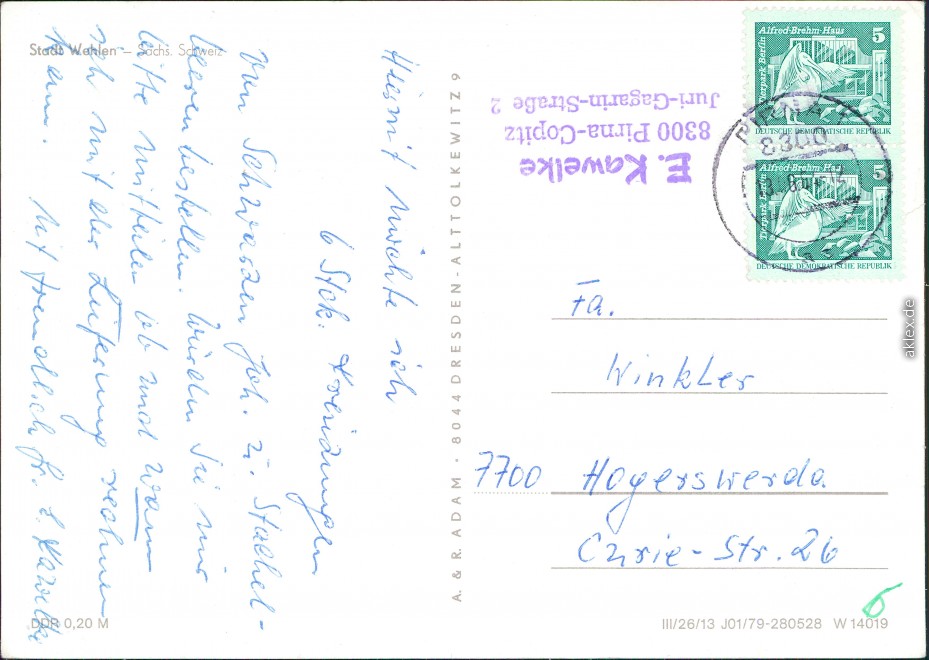 Stadt Wehlen – Sächs. Schweiz
Hiermit möchte ich
6 Stck.
von Schwarzen Joh. u. Stachel-
beeren bestellen. Würden Sie mir
bitte mitteilen ob und wann
ich mit der Lieferung rechnen
kann. Mit freundlich. Gr. E. Kawelke
DDR 0,20 M
A. & R. ADAM · 8044 DRESDEN-ALTTOLKEWITZ 9
E. Kawelke
8300 Pirna-Copitz
Juri-Gagarin-Straße 2
Alfred-Brehm-Haus 5
Tierpark Berlin
DEUTSCHE DEMOKRATISCHE REPUBLIK
Alfred-Brehm-Haus 5
Tierpark Berlin
DEUTSCHE DEMOKRATISCHE REPUBLIK
PIRNA
8300
Fa.
Winkler
7700 Hoyerswerda
Curie-Str. 26
III/26/13 J01/79-280528 W 14019
6
aklex.de